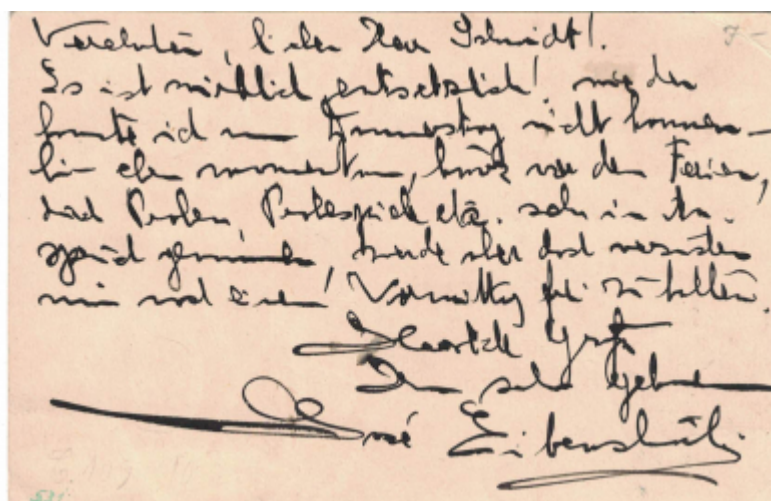 Verehrter, lieber Herr Schmidt!
Es ist wirklich entsetzlich! wieder
konnte ich am Donnerstag nicht kommen –
bin eben momentan, kurz vor den Ferien,
durch Proben, Probespiele etc. sehr in An-
spruch genommen, werde aber doch versuchen
mir noch einen Vormittag frei zu halten.
Herzliche Grüße
Ihr sehr ergebener
José Eibenschütz